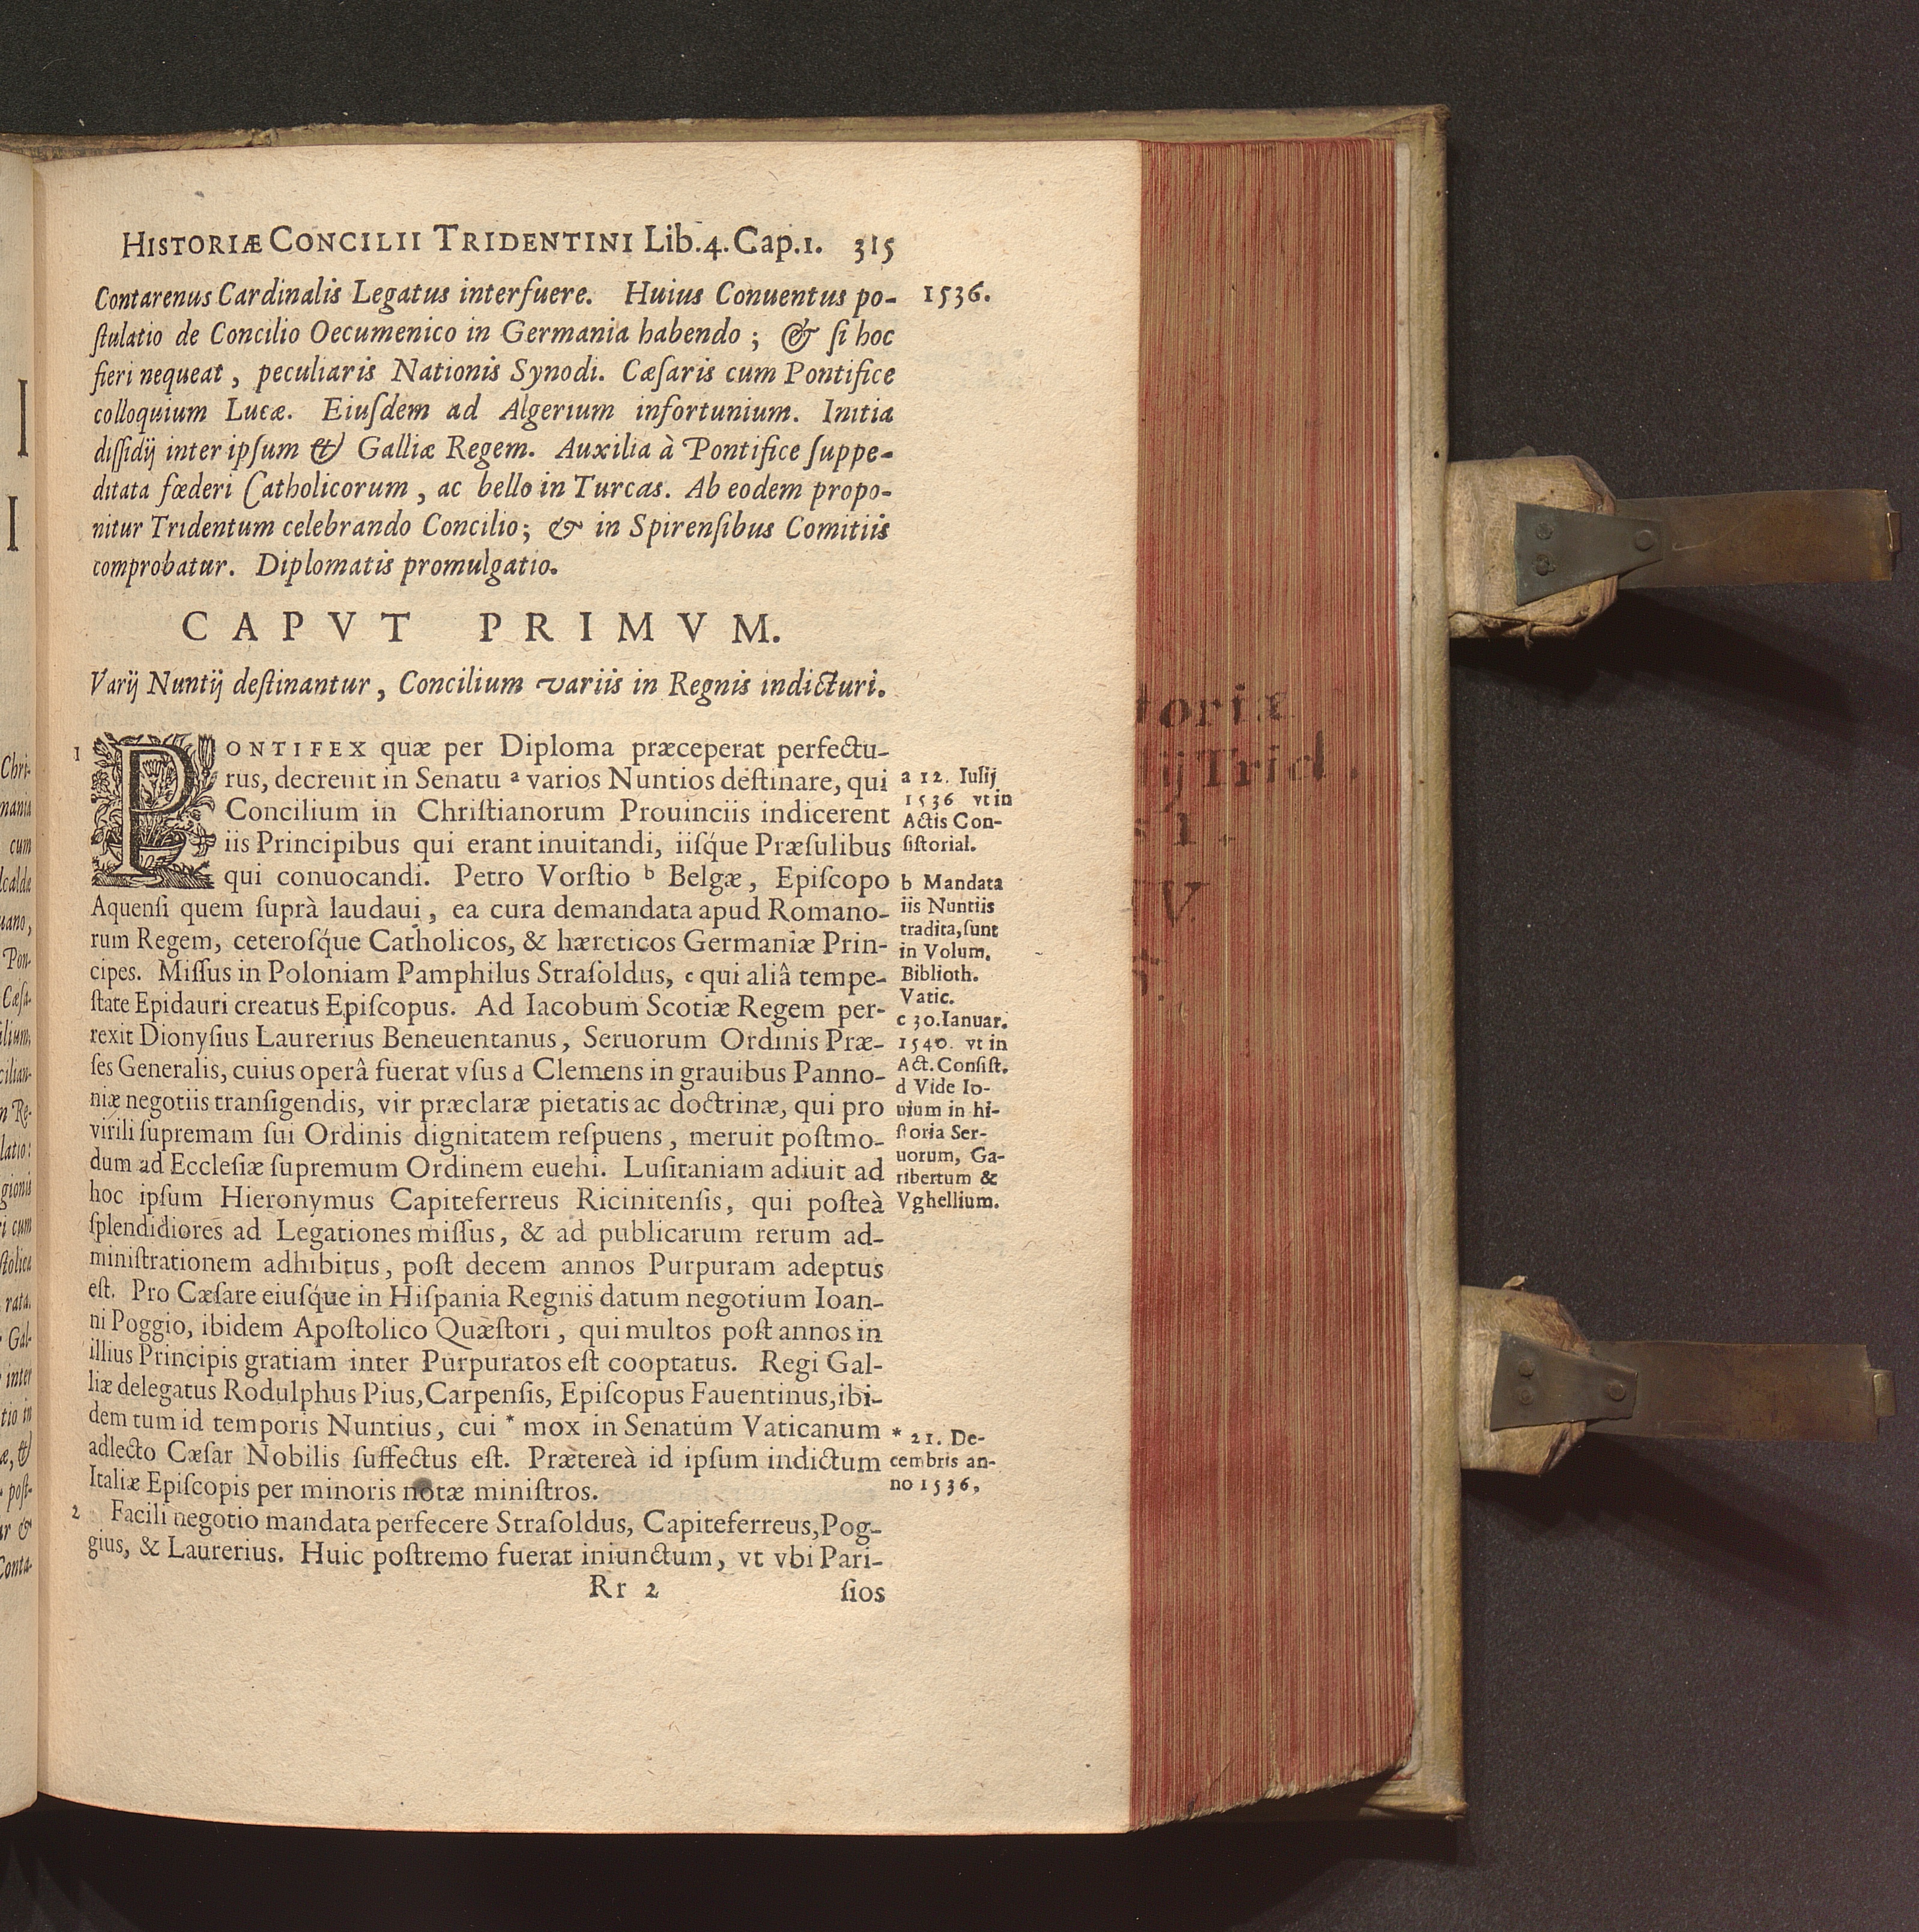 HISTORIÆ CONCILII TRIDENTINI Lib.4. Cap.1. 315
1536.
Contarenus Cardinalis Legatus interfuere. Huius Conuentus po-
ſtulatio de Concilio Oecumenico in Germania habendo; & ſi hoc
fieri nequeat, peculiaris Nationis Synodi. Cæſaris cum Pontifice
colloquium Lucæ. Eiuſdem ad Algerium infortunium. Initia
diſſidij inter ipſum & Galliæ Regem. Auxilia à Pontifice ſuppe-
ditata fœderi Catholicorum, ac bello in Turcas. Ab eodem propo-
nitur Tridentum celebrando Concilio; & in Spirenſibus Comitiis
comprobatur. Diplomatis promulgatio.
CAPVT PRIMVM.
Varij Nuntij deſtinantur, Concilium variis in Regnis indicturi.
1 PONTIFEX quæ per Diploma præceperat perfectu-
rus, decreuit in Senatu a varios Nuntios deſtinare, qui
Concilium in Chriſtianorum Prouinciis indicerent
iis Principibus qui erant inuitandi, iiſq́ue Præſulibus
qui conuocandi. Petro Vorſtio b Belgæ, Epiſcopo
Aquenſi quem ſuprà laudaui, ea cura demandata apud Romano-
rum Regem, ceteroſq́ue Catholicos, & hæreticos Germaniæ Prin-
cipes. Miſſus in Poloniam Pamphilus Straſoldus, c qui aliâ tempe-
ſtate Epidauri creatus Epiſcopus. Ad Iacobum Scotiæ Regem per-
rexit Dionyſius Laurerius Beneuentanus, Seruorum Ordinis Præ-
ſes Generalis, cuius operâ fuerat vſus d Clemens in grauibus Panno-
niæ negotiis tranſigendis, vir præclaræ pietatis ac doctrinæ, qui pro
virili ſupremam ſui Ordinis dignitatem reſpuens, meruit poſtmo-
dum ad Eccleſiæ ſupremum Ordinem euehi. Luſitaniam adiuit ad
hoc ipſum Hieronymus Capiteferreus Ricinitenſis, qui poſteà
ſplendidiores ad Legationes miſſus, & ad publicarum rerum ad-
miniſtrationem adhibitus, poſt decem annos Purpuram adeptus
eſt. Pro Cæſare eiuſq́ue in Hiſpania Regnis datum negotium Ioan-
ni Poggio, ibidem Apoſtolico Quæſtori, qui multos poſt annos in
illius Principis gratiam inter Purpuratos eſt cooptatus. Regi Gal-
liæ delegatus Rodulphus Pius, Carpenſis, Epiſcopus Fauentinus, ibi-
dem tum id temporis Nuntius, cui * mox in Senatum Vaticanum
adlecto Cæſar Nobilis ſuffectus eſt. Prætereà id ipſum indictum
Italiæ Epiſcopis per minoris notæ miniſtros.
2 Facili negotio mandata perfecere Straſoldus, Capiteferreus, Pog-
gius, & Laurerius. Huic poſtremo fuerat iniunctum, vt vbi Pari-
Rr 2 ſios
a 12. Iulij
1536 vt in
Actis Con-
ſiſtorial.
b Mandata
iis Nuntiis
tradita, ſunt
in Volum.
Biblioth.
Vatic.
c 30. Ianuar.
1540. vt in
Act. Conſiſt.
d Vide Io-
uium in hi-
ſtoria Ser-
uorum, Ga-
ribertum &
Vghellium.
* 21. De-
cembris an-
no 1536,
toriæ
ij Trid.
V